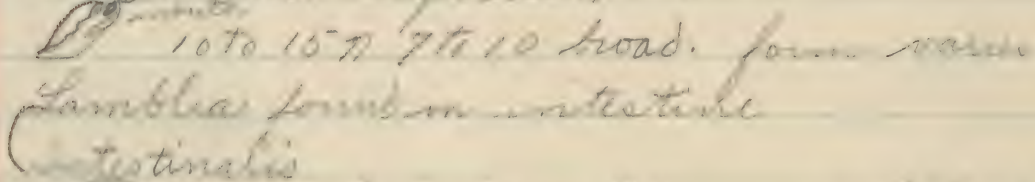 mouth
10 to 15 n 7 to 10 broad. form varies
Lamblia found in intestine
intestinalis